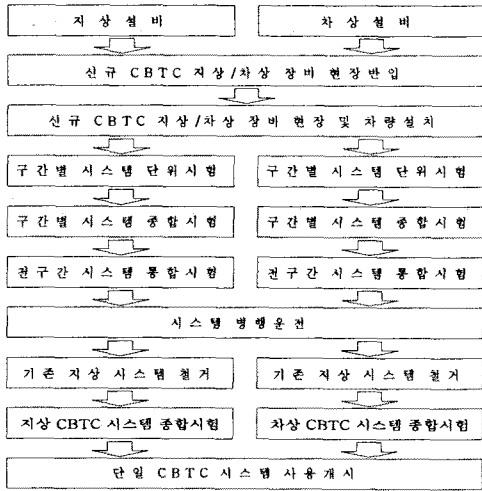 지상설비
차상설비
신규 CBTC 지상/차상 장비 현장반입
신규 CBTC 지상/차상 장비 현장 및 차량설치
구간별 시스템 단위시험
구간별 시스템 단위시험
구간별 시스템 종합시험
구간별 시스템 종합시험
전구간 시스템 통합시험
전구간 시스템 통합시험
시스템 병행운전
기존 지상 시스템 철거
기존 지상 시스템 철거
지상 CBTC 시스템 종합시험
차상 CBTC 시스템 종합시험
단일 CBTC 시스템 사용개시